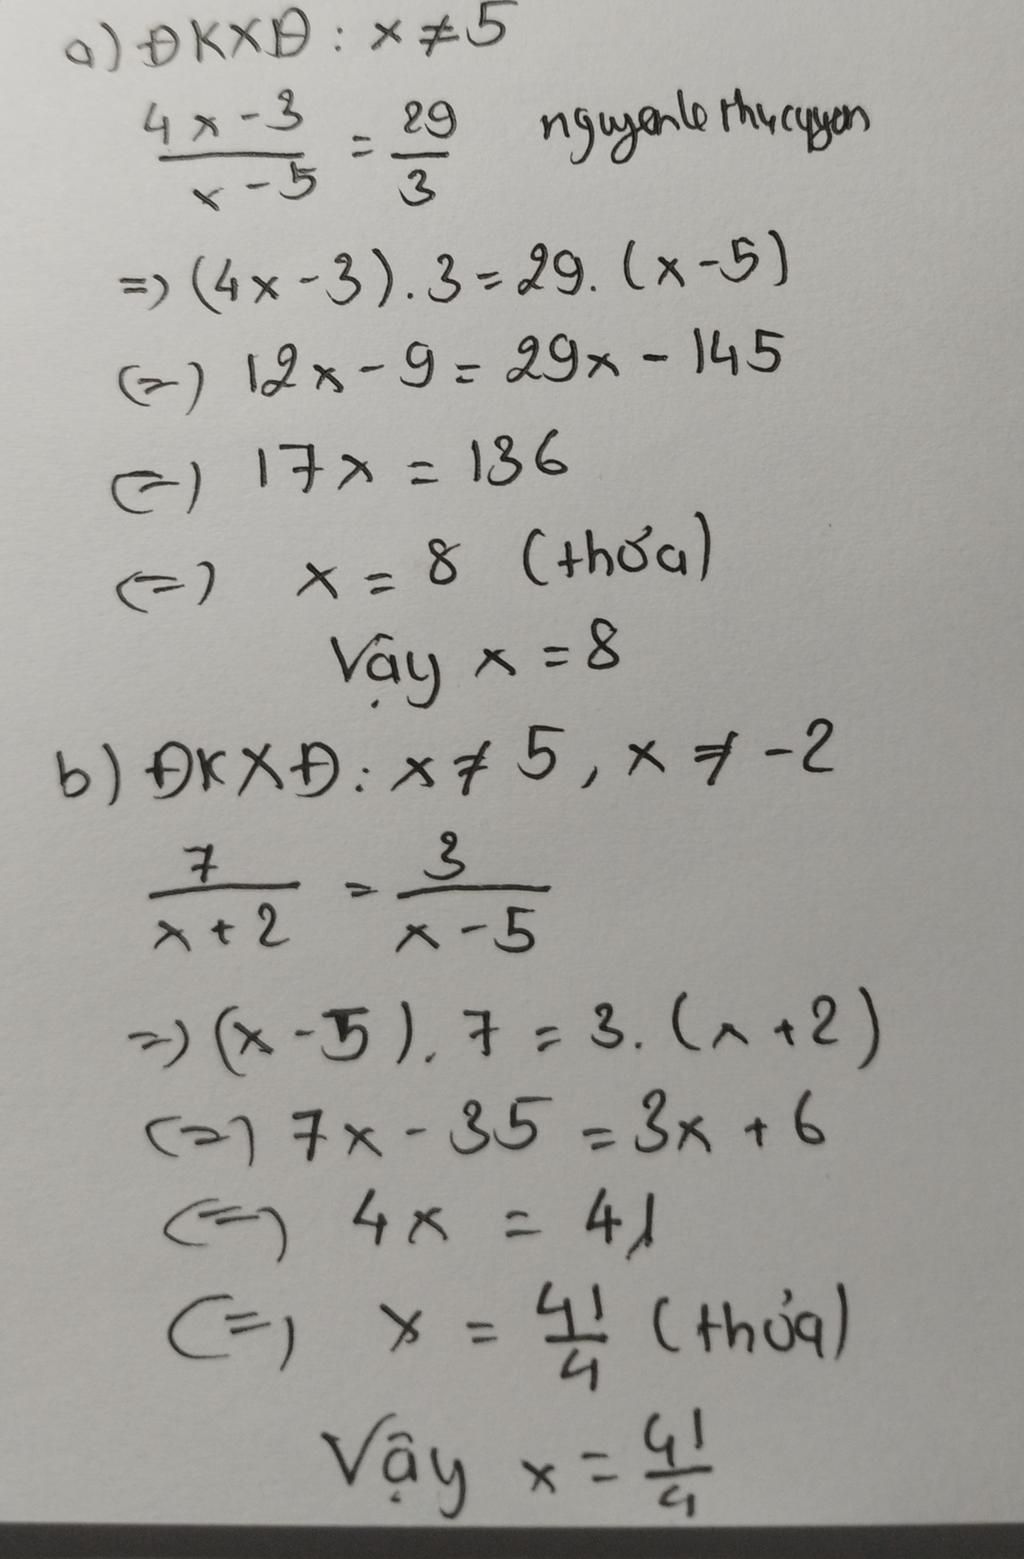 a) ĐKXĐ: x ≠ 5
(4x - 3)/(x - 5) = 29/3 nguyenlethucuyen
=> (4x - 3). 3 = 29. (x - 5)
<=> 12x - 9 = 29x - 145
<=> 17x = 136
<=> x = 8 (thỏa)
Vậy x = 8
b) ĐKXĐ: x ≠ 5, x ≠ -2
7/(x + 2) = 3/(x - 5)
=> (x - 5). 7 = 3. (x + 2)
<=> 7x - 35 = 3x + 6
<=> 4x = 41
<=> x = 41/4 (thỏa)
Vậy x = 41/4